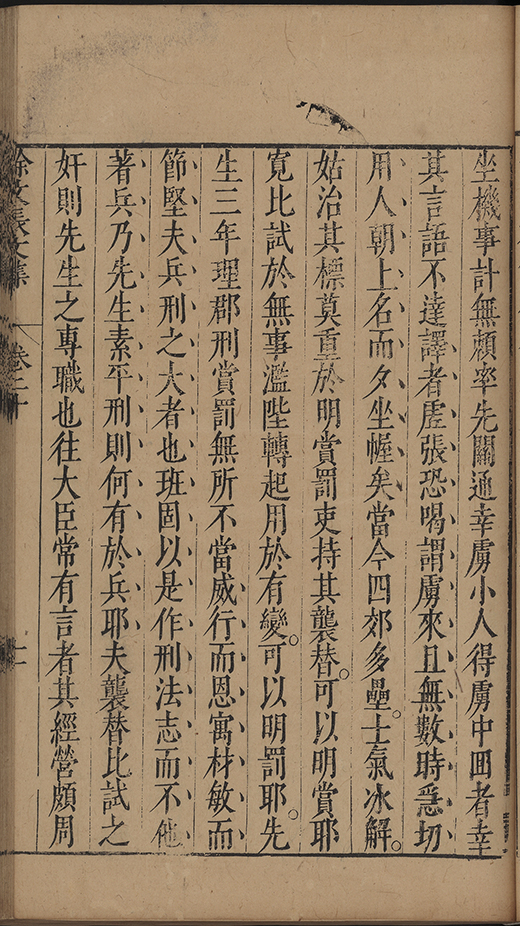 坐機事計無賴率先關通幸虜小人得虜中囬者幸
其言語不達譯者虗張恐喝謂虜來且無數時急切
用人朝上名而夕坐幄矣當今四郊多壘。士氣冰解。
姑治其標莫重於明賞罰吏持其襲替。可以明賞耶
寛比試於無事濫陛轉起用於有變。可以明罰耶。先
生三年理郡刑賞罰無所不當威行而恩寓材敏而
節堅夫兵刑之大者也班固以是作刑法志而不他
著兵乃先生素平刑則何有於兵耶夫襲替比試之
奸則先生之專職也往大臣常有言者其經營頗周
徐文長文集 卷二十